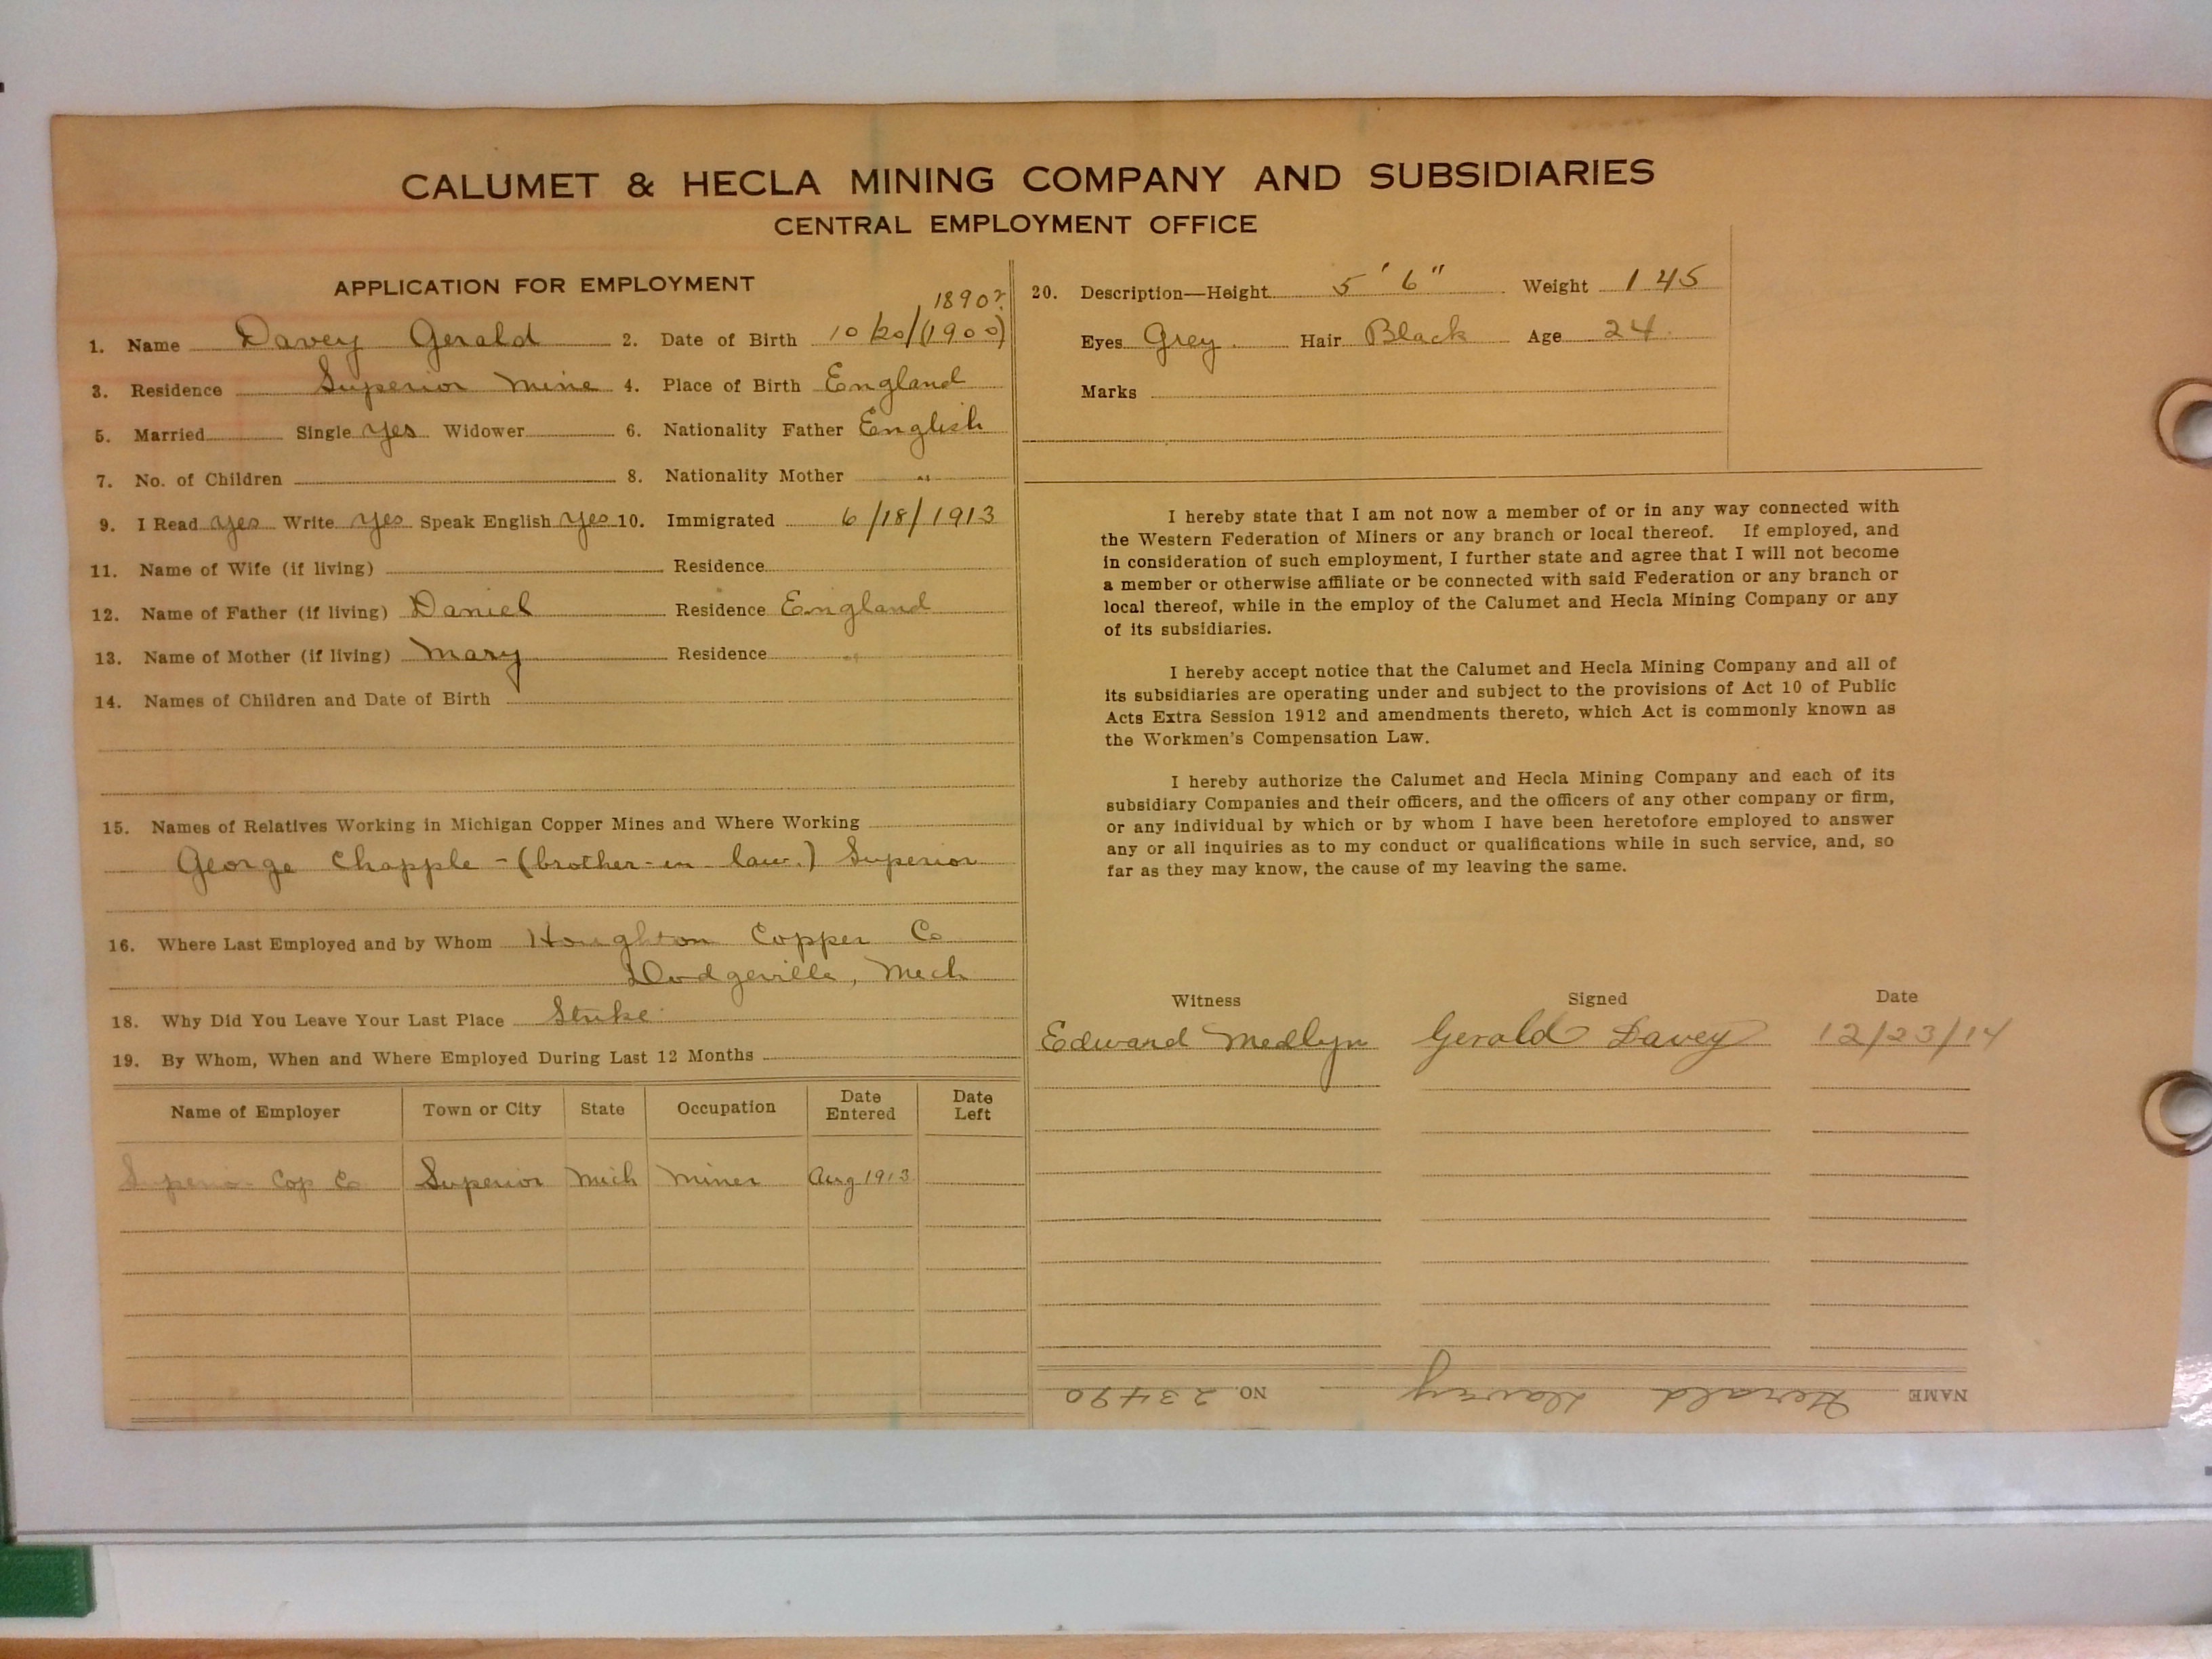 CALUMET & HECLA MINING COMPANY AND SUBSIDIARIES
CENTRAL EMPLOYMENT OFFICE
APPLICATION FOR EMPLOYMENT
1890?
1. Name Davey Gerald 2. Date of Birth 10/20/(1900)
3. Residence Superior Mine 4. Place of Birth England
5. Married Single yes Widower 6. Nationality Father English
7. No. of Children 8. Nationality Mother "
9. I Read yes Write yes Speak English yes 10. Immigrated 6/18/1913
11. Name of Wife (if living) Residence
12. Name of Father (if living) Daniel Residence England
13. Name of Mother (if living) Mary Residence "
14. Names of Children and Date of Birth
15. Names of Relatives Working in Michigan Copper Mines and Where Working
George Chapple - (brother-in-law.) Superior
16. Where Last Employed and by Whom Houghton Copper Co
Dodgeville, Mich
18. Why Did You Leave Your Last Place Strike
19. By Whom, When and Where Employed During Last 12 Months
Name of Employer Town or City State Occupation Date Entered Date Left
Superior Cop Co Superior Mich Miner Aug 1913
20. Description—Height 5' 6" Weight 145
Eyes Grey. Hair Black Age 24
Marks
I hereby state that I am not now a member of or in any way connected with
the Western Federation of Miners or any branch or local thereof. If employed, and
in consideration of such employment, I further state and agree that I will not become
a member or otherwise affiliate or be connected with said Federation or any branch or
local thereof, while in the employ of the Calumet and Hecla Mining Company or any
of its subsidiaries.
I hereby accept notice that the Calumet and Hecla Mining Company and all of
its subsidiaries are operating under and subject to the provisions of Act 10 of Public
Acts Extra Session 1912 and amendments thereto, which Act is commonly known as
the Workmen's Compensation Law.
I hereby authorize the Calumet and Hecla Mining Company and each of its
subsidiary Companies and their officers, and the officers of any other company or firm,
or any individual by which or by whom I have been heretofore employed to answer
any or all inquiries as to my conduct or qualifications while in such service, and, so
far as they may know, the cause of my leaving the same.
Witness Signed Date
Edward Medlyn Gerald Davey 12/23/14
NAME Gerald Davey NO. 23490